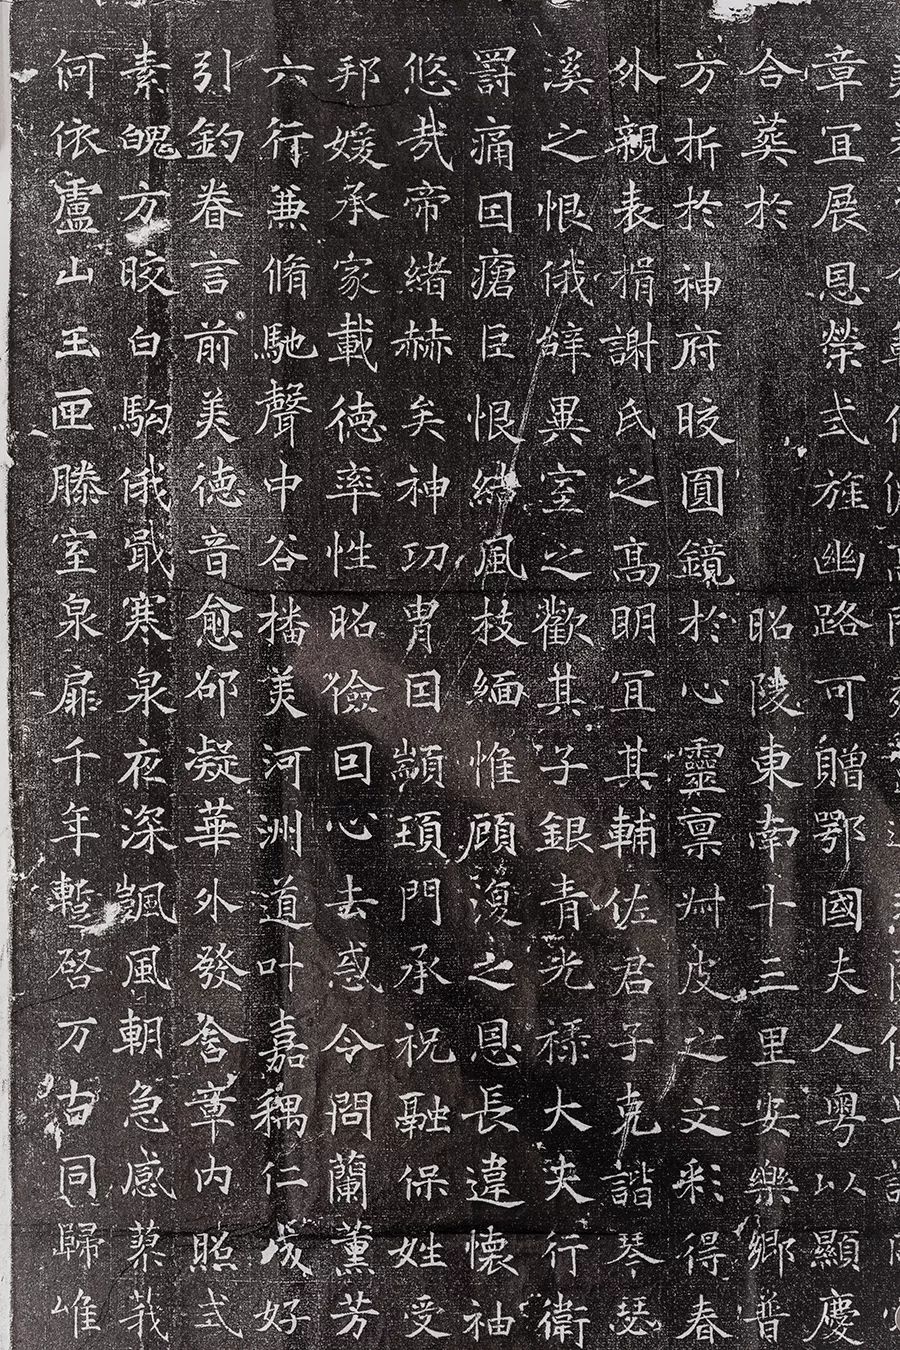 章冝展恩榮式旌幽路可贈鄂國夫人粵以顯慶
合葬於 昭陵東南十三里安樂鄉普
方折於神府晈圓鏡於心靈禀皮之文彩得春
外親表捐謝氏之髙明冝其輔佐君子克諧琴瑟
溪之恨俄辝異室之歡其子銀青光禄大夫行衛
罸痛曰瘡巨恨結風枝緬惟顧復之恩長違懷袖
悠哉帝緒赫矣神功胄曰顓頊門承祝融保姓受
邦媛承家載德率性昭儉回心去惑令問蘭薰芳
六行兼脩馳聲中谷播美河洲道叶嘉耦仁成好
引釣眷言前美德音愈邵凝華外發含章内照式
素魄方晈白駒俄戢寒泉夜深飃風朝急感蓼莪
何依廬山玉匣滕室泉扉千年蹔啓万古同歸唯